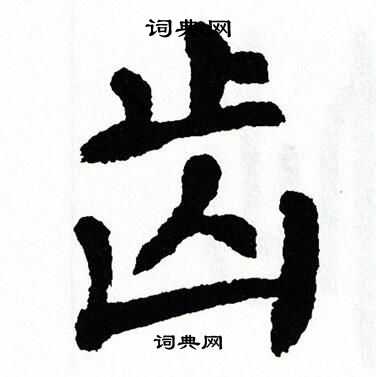 词典网
齿
词典网